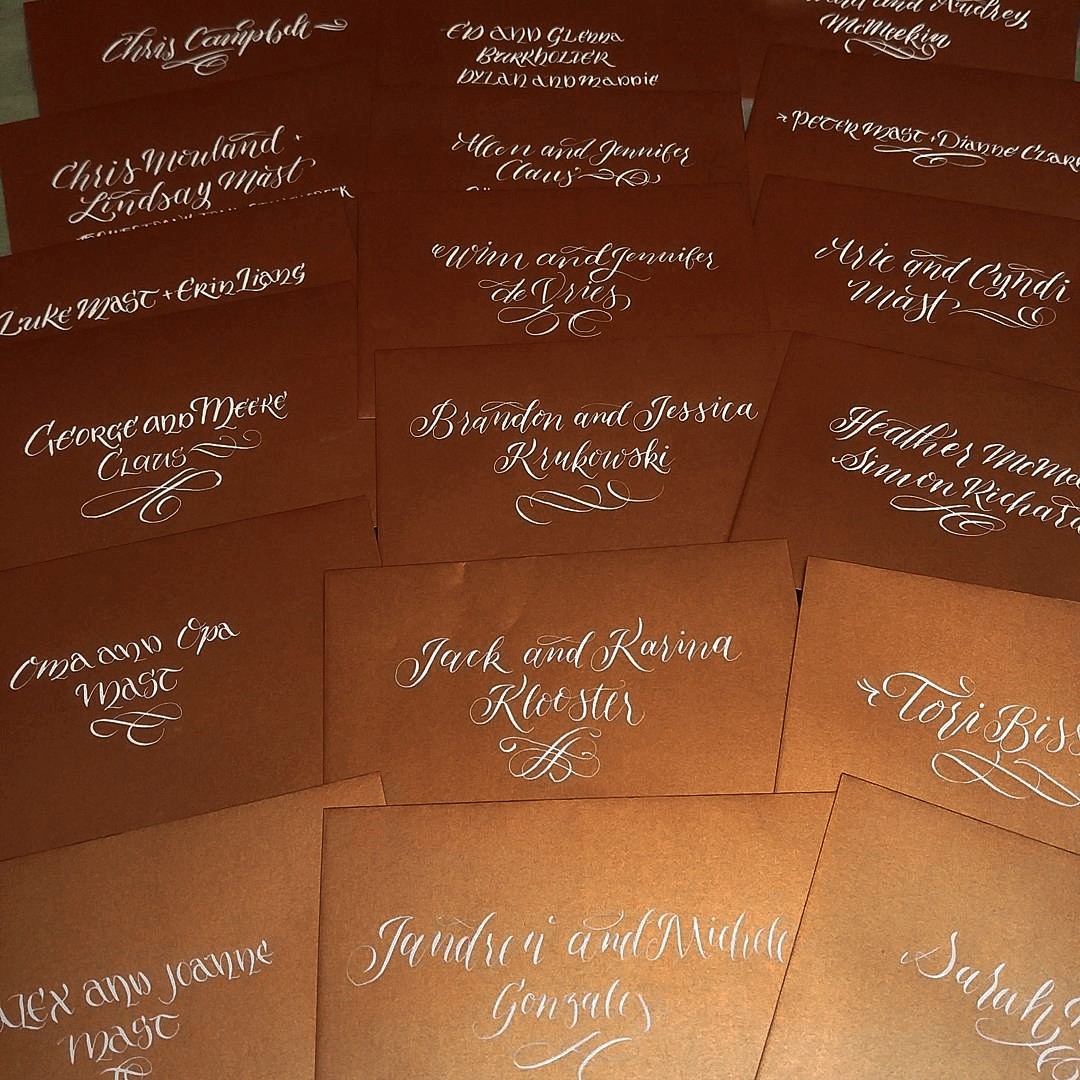 Chris Campbell
Ed and Glenna
Burkholter
Dylan and Maddie
and Audrey
McMeekin
Chris Mouland ·
Lindsay Mast
Allen and Jennifer
Claus
Peter Mast · Dianne Clark
Luke Mast + Erin Liang
Wim and Jennifer
de Vries
Arie and Cyndi
Mast
George and Meere
Claus
Brandon and Jessica
Krukowski
Heather McMee
Simon Richard
Oma and Opa
Mast
Jack and Karina
Klooster
Tori Biss
Alex and Joanne
Mast
Jandren and Michele
Gonzales
Sarah